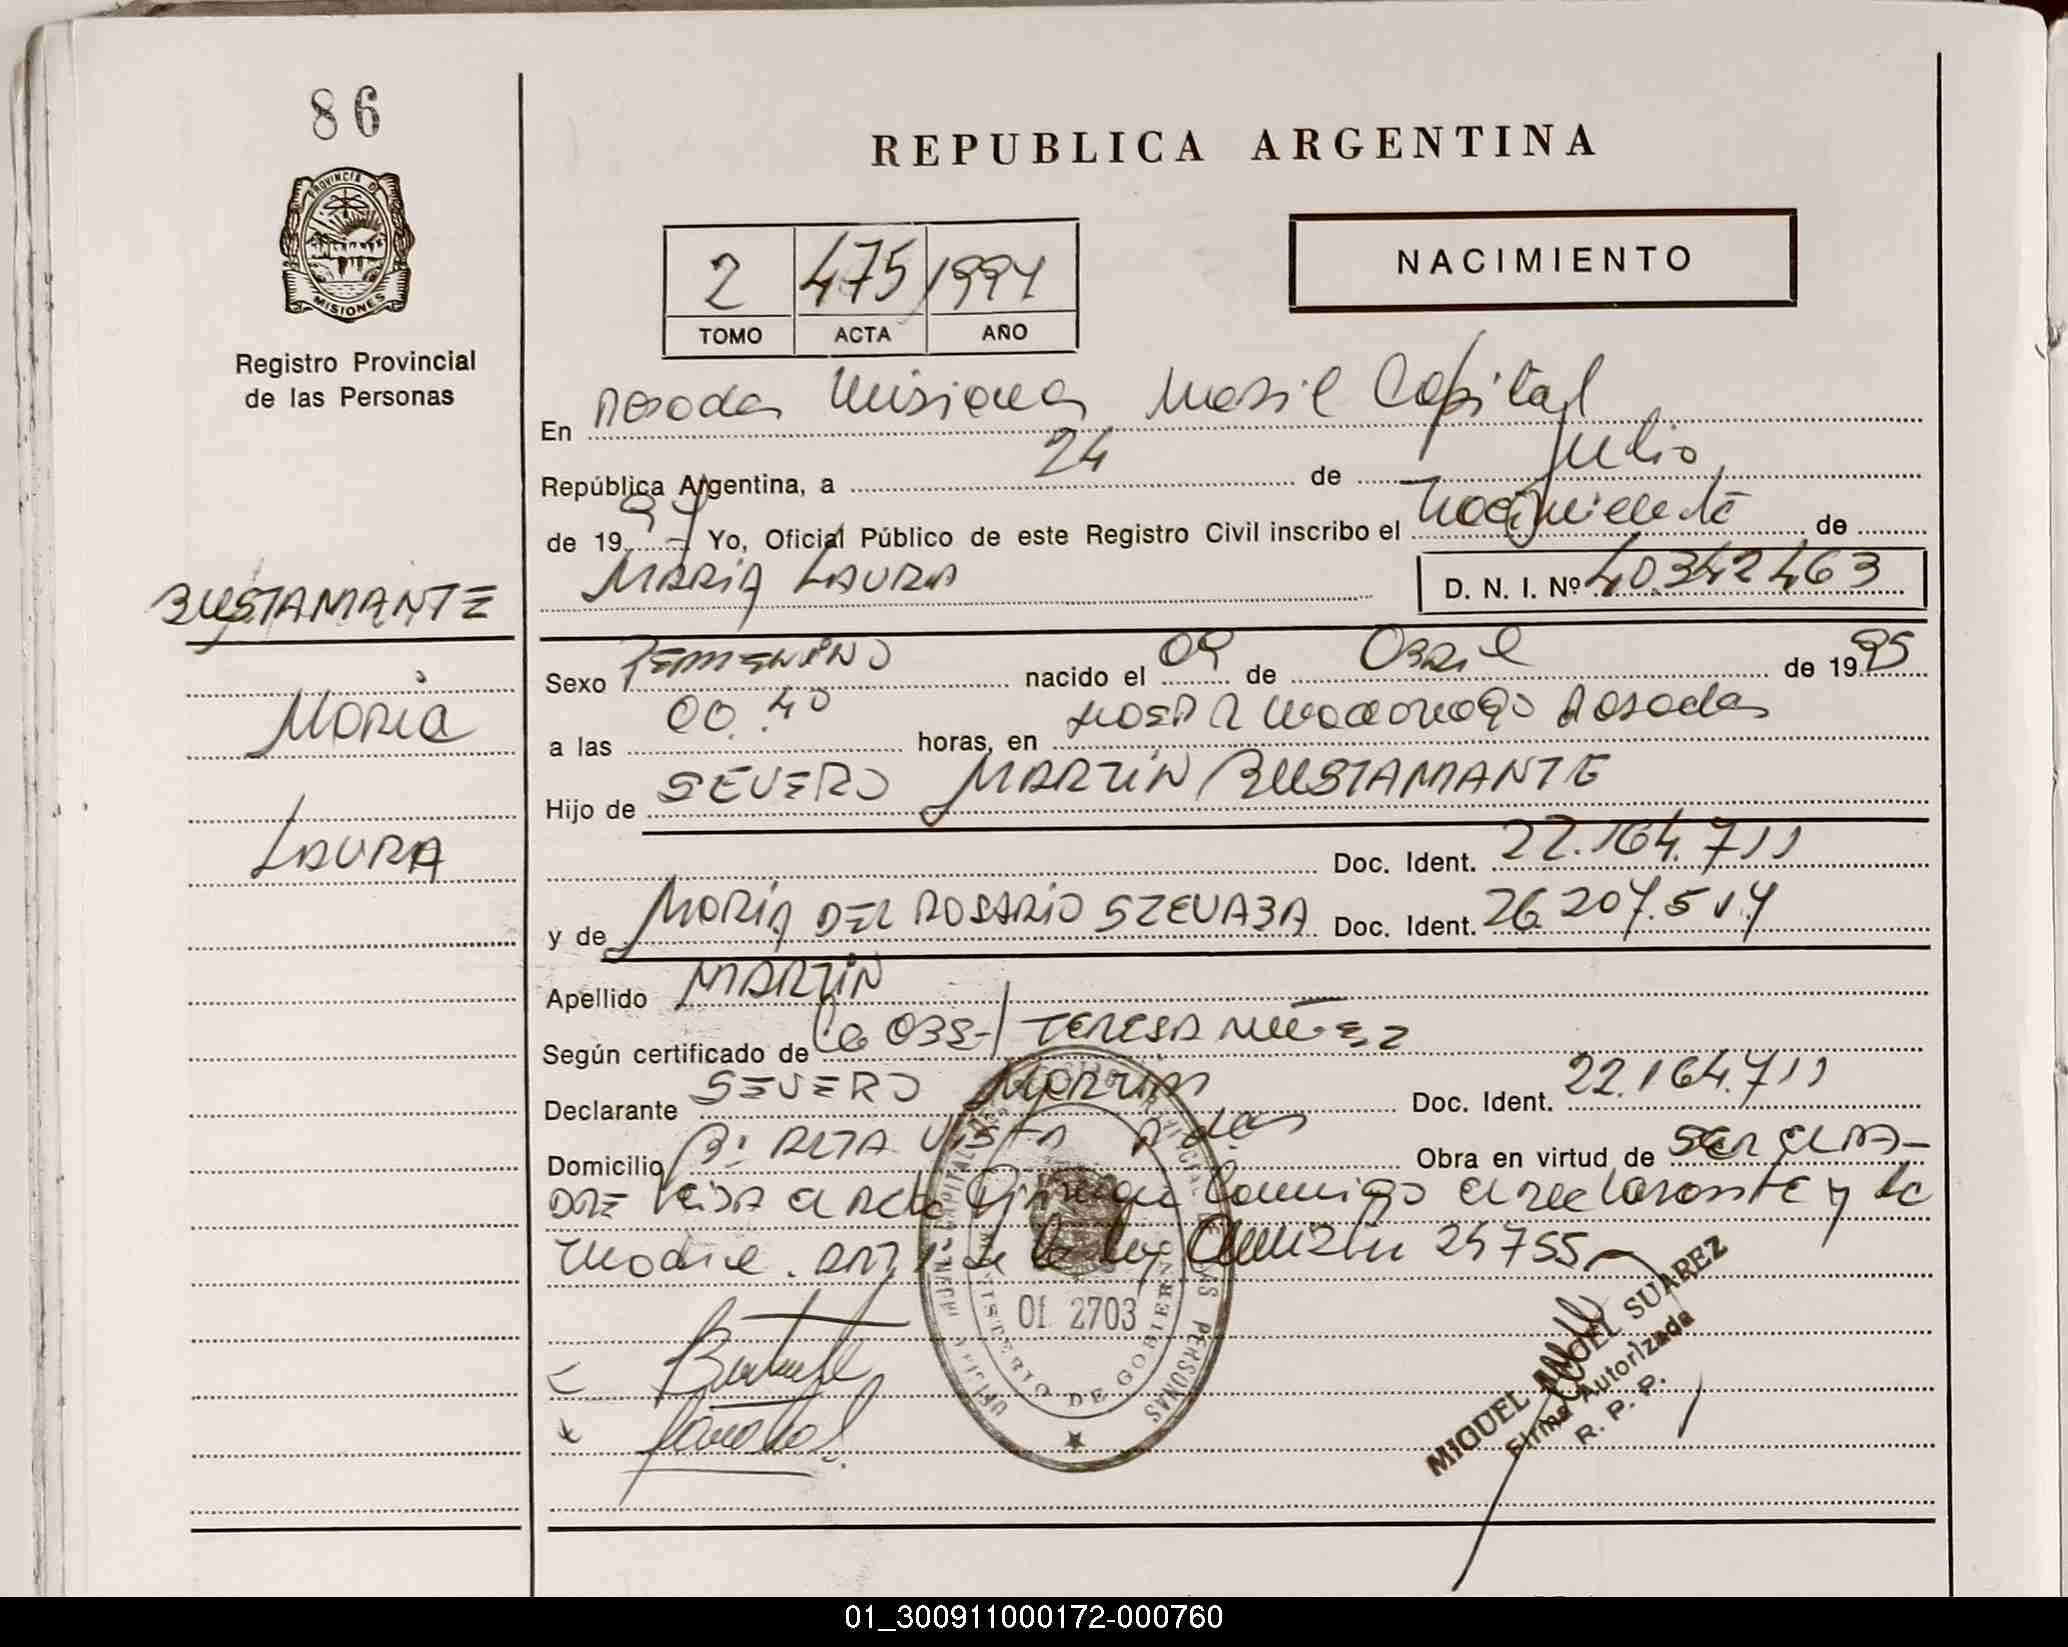 86
PROVINCIA DE
MISIONES
Registro Provincial
de las Personas
REPUBLICA ARGENTINA
2 475 1997
TOMO ACTA AÑO
NACIMIENTO
En Posadas Misiones Capital
República Argentina, a 24 de Julio
de 1997 Yo, Oficial Público de este Registro Civil inscribo el Nacimiento de
MARIA LAURA D. N. I. Nº 40342463
BUSTAMANTE
Maria
LAURA
Sexo FEMENINO nacido el 09 de Abril de 1995
a las 00.40 horas, en Posadas
Hijo de SEVERO MARTIN BUSTAMANTE
Doc. Ident. 22.164.711
y de MARIA DEL ROSARIO Doc. Ident. 26.207.517
Apellido MARTIN
Según certificado de la OBST TERESA NUÑEZ
Declarante SEVERO MARTIN Doc. Ident. 22.164.711
Domicilio Bº ALTA VISTA Pdas Obra en virtud de SER EL PA-
DRE Leida el Acta conmigo el declarante y la
Madre. de la ley
01 2703
MINISTERIO DE GOBIERNO
MIGUEL ANGEL SUAREZ
Firma Autorizada
R. P. P.
01_300911000172-000760